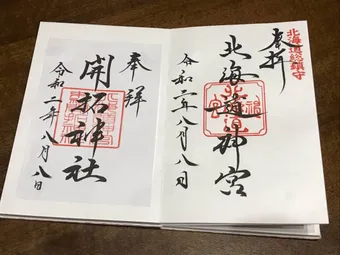 北海道総鎮守
奉拝
北海道神宮
令和二年八月八日
奉拝
開拓神社
令和二年八月八日